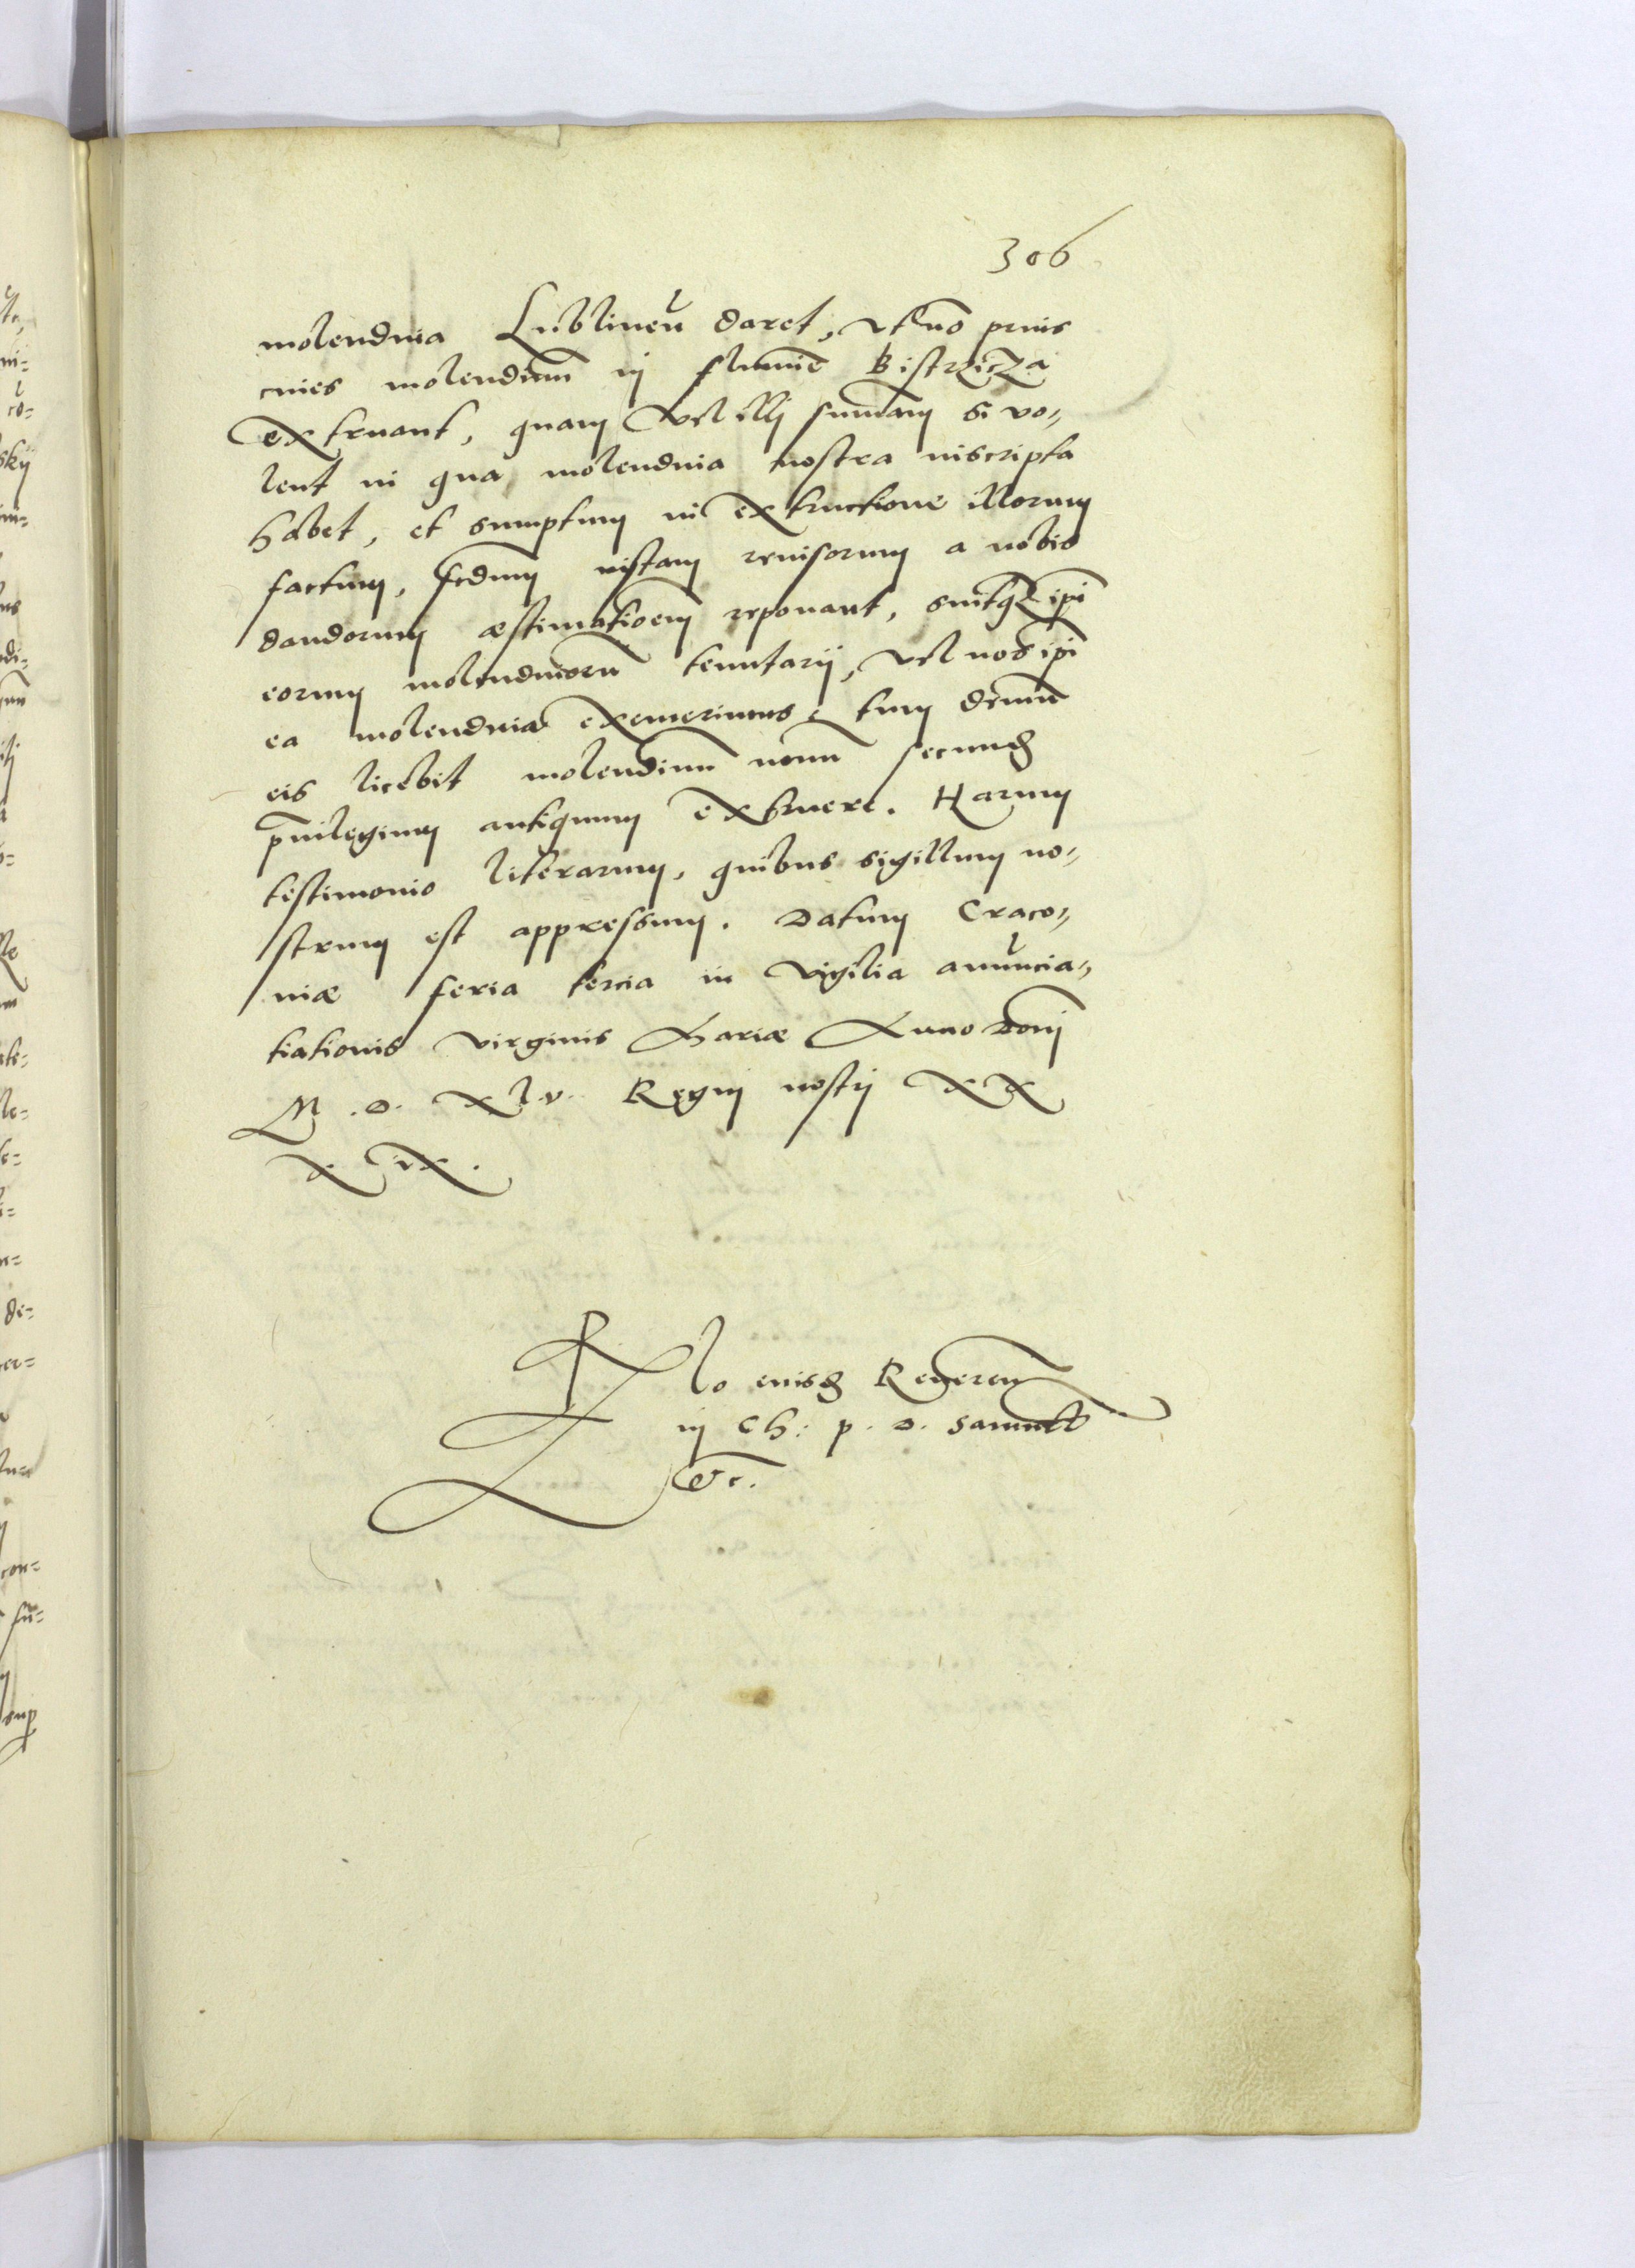 306
molendina Lublineñ daret, ut nõ prius
cives molendinũ in flumine Bistrzicza
extruant, quam vel illi sum̃am si vo„
lent in qua molendina nostra inscripta
habet, et sumptum in extructione illorum
factum, scdum iustam revisorum a nobis
dandorum æstimatioẽm reponant, sintq̃ ipi
eorum molendinorũ tenutarij, vel nos ipi
ea molendina exemerimus, tum demũ
eis licebit molendinũ novũ secund
privilegium antiquum extruere. Harum
testimonio literarum, quibus sigillum no„
strum est appressum. Datum Craco„
viæ feria tercia in vigilia anuncia„
tiationis virginis Mariæ Anno Domini
M. D. xlv. Regni nostri xx
x ix.
Rlo eiusd Reveren
in Ch: p. D. Samuel
etc.